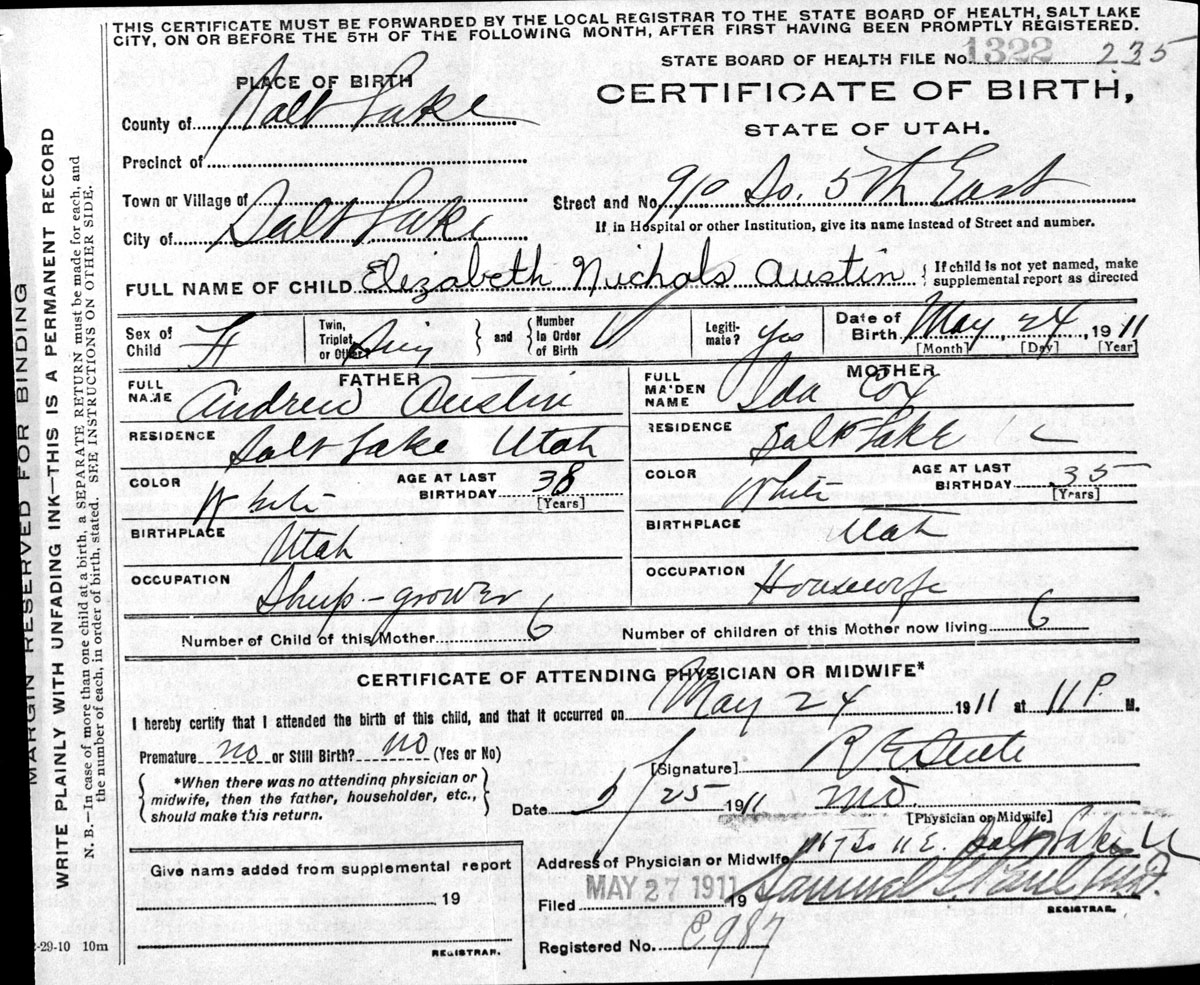 THIS CERTIFICATE MUST BE FORWARDED BY THE LOCAL REGISTRAR TO THE STATE BOARD OF HEALTH, SALT LAKE
CITY, ON OR BEFORE THE 5TH OF THE FOLLOWING MONTH, AFTER FIRST HAVING BEEN PROMPTLY REGISTERED.
STATE BOARD OF HEALTH FILE No. 1322 235
PLACE OF BIRTH
CERTIFICATE OF BIRTH,
STATE OF UTAH.
County of Salt Lake
Precinct of
Town or Village of
City of Salt Lake
Street and No. 910 So. 5th East
If in Hospital or other Institution, give its name instead of Street and number.
FULL NAME OF CHILD Elizabeth Nichols Austin { If child is not yet named, make
supplemental report as directed
Sex of Child F
Twin, Triplet or Other Sing
and
Number In Order of Birth
Legiti-mate? Yes
Date of Birth, May 24, 1911
[Month] [Day] [Year]
FATHER
FULL NAME Andrew Austin
RESIDENCE Salt Lake Utah
COLOR White
AGE AT LAST BIRTHDAY 38
[Years]
BIRTHPLACE Utah
OCCUPATION Sheep-grower
MOTHER
FULL MAIDEN NAME Ida Cox
RESIDENCE Salt Lake
COLOR White
AGE AT LAST BIRTHDAY 35
[Years]
BIRTHPLACE Utah
OCCUPATION Housewife
Number of Child of this Mother 6 Number of children of this Mother now living 6
CERTIFICATE OF ATTENDING PHYSICIAN OR MIDWIFE*
I hereby certify that I attended the birth of this child, and that it occurred on May 24 1911 at 11 P. M.
Premature no or Still Birth? no (Yes or No)
*When there was no attending physician or
midwife, then the father, householder, etc.,
should make this return.
[Signature] R E
Date 5/25 1911 MD.
[Physician or Midwife]
Address of Physician or Midwife Salt Lake
Filed MAY 27 1911 19 Samuel
REGISTRAR.
Registered No. 8987
Give name added from supplemental report
19
REGISTRAR.
-29-10 10m
MARGIN RESERVED FOR BINDING
WRITE PLAINLY WITH UNFADING INK—THIS IS A PERMANENT RECORD
N. B.—In case of more than one child at a birth, a SEPARATE RETURN must be made for each, and
the number of each, in order of birth, stated. SEE INSTRUCTIONS ON OTHER SIDE.